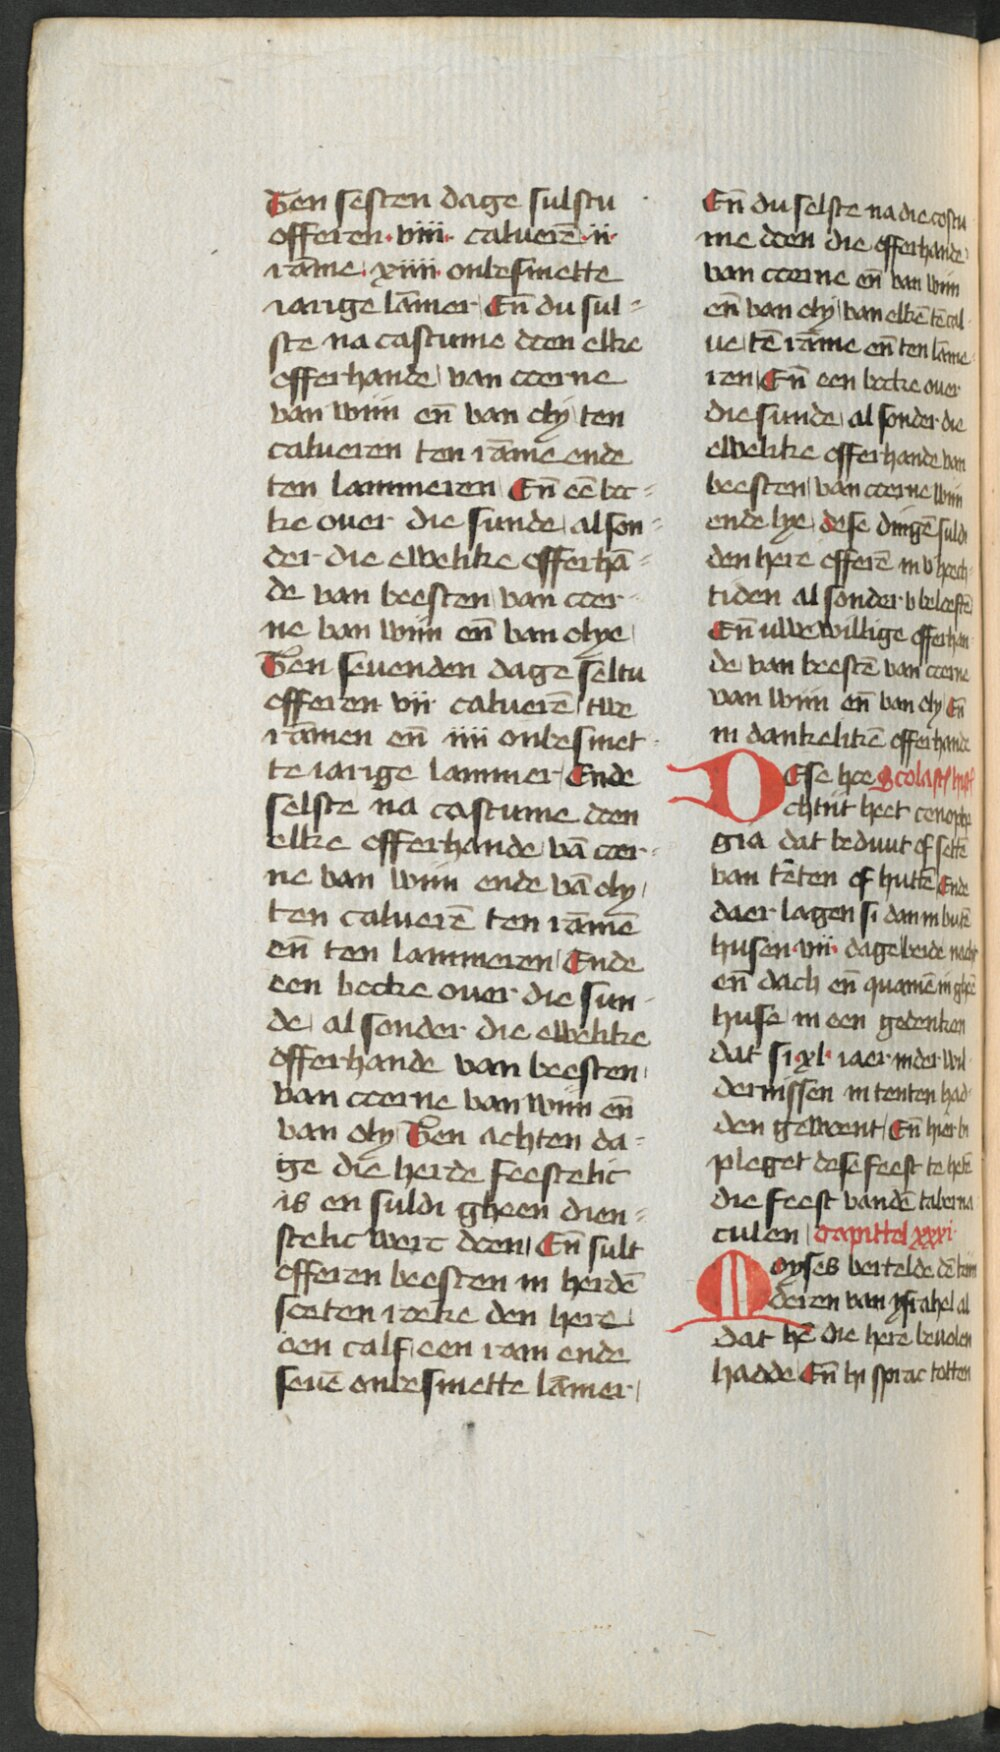 Ten sesten dage sulstu
offeren · viii · calueren̄ · ii ·
rāme · xiiii · onbesmette
iarige lām̄er En̄ du sul⸗
ste na castume doen elke
offerhande van coerne
van wiin en̄ van oly ten
calueren ten rāme ende
ten lammeren En̄ eē boc⸗
ke ouer die sunde al son⸗
der die ewelike offerhā⸗
de van beesten van coer⸗
ne van wiin en̄ van olye
Ten seuenden dage seltu
offeren vii caluerē twe
rāmen en̄ iiii onbesmet
te iarige lammer Ende
selste na castume doen
elke offerhande vā coer⸗
ne van wiin ende vā oly
ten caluerē ten rāmē
en̄ ten lammeren Ende
een bocke ouer die sun⸗
de al sonder die ewelike
offerhande van beesten
van coerne van wiin en̄
van oly Ten achten da⸗
ge die herde feestelic
is en suldi gheen dien⸗
stelic werc doen En̄ sult
offeren beesten in herdē
soeten roke den here
een calf een ram ende
seuē onbesmette lām̄er
En̄ du selste na die costu
me doen die offerhande
van coerne en̄ van wiin
en̄ van oly van elkē tē cal
ue tē rāme en̄ ten lāme
ren En̄ een bocke ouer
die sunde al sonder die
ewelike offerhande van
beesten van coerne wiin
ende lye dese dingē suldi
den here offerē in v hooch
tiden al sonder v beleeftē
En̄ uwe willige offerhan
de van beestē van coerne
van wiin en̄ van oly En̄
in dankelikē offerhande
DEse hoe Scolast
chtut heet cenophe
gia dat beduut of settē
van tēten of huttē Ende
daer lagen si dan in butē
husen · vii · dage beide nacht
en̄ dach en̄ quamē in gheē
huse in een gedenken
dat si · xl · iaer in der wil
dernissen in tenten had
den gewoent En̄ hier bi
pleget dese feest te hetē
die feest vandē taberna
culen Capittel xxxi
Moyses vertelde dē kin
deren van ysrahel al
dat hē die here beuolen
hadde En̄ hi sprac totten